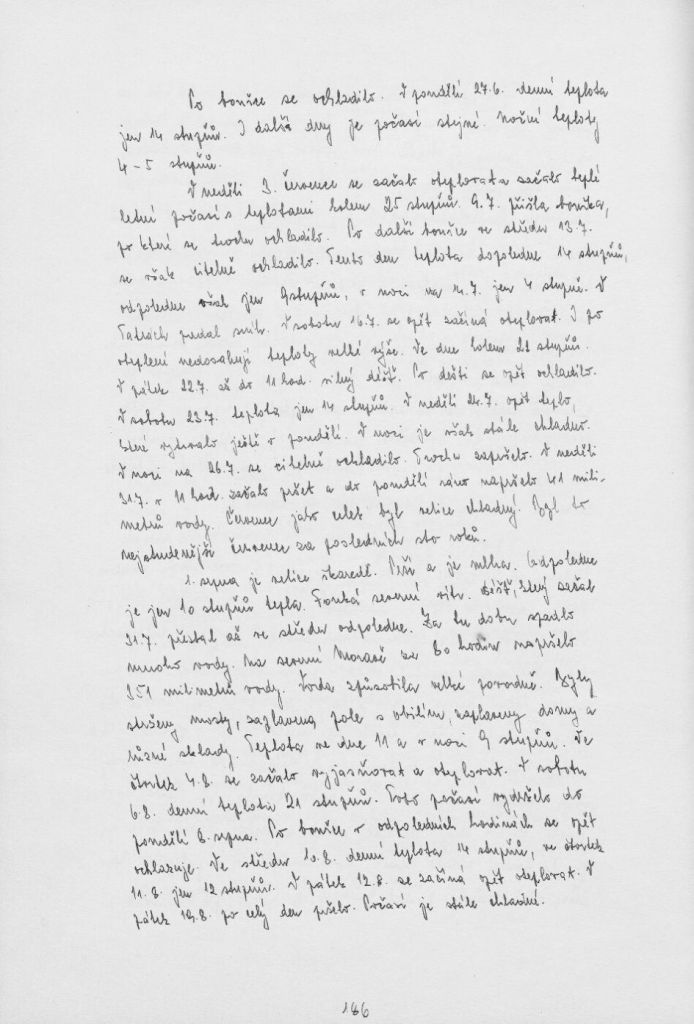 Po bouřce se ochladilo. V pondělí 27.6. denní teplota
jen 14 stupňů. I další dny je počasí stejné. Noční teploty
4-5 stupňů.
V neděli 3. července se začalo oteplovat a začalo teplé
letní počasí s teplotami kolem 25 stupňů. 9.7. přišla bouřka,
po které se trochu ochladilo. Po další bouřce ve středu 13.7.
se však citelně ochladilo. Tento den teplota dopoledne 14 stupňů,
odpoledne však jen 9 stupňů, v noci na 14.7. jen 4 stupně. V
Tatrách padal sníh. V sobotu 16.7. se opět začíná oteplovat. I po
oteplení nedosahují teploty velké výše. Ve dne kolem 21 stupňů.
V pátek 22.7. až do 11 hod. silný déšť. Po dešti se opět ochladilo.
V sobotu 23.7. teplota jen 14 stupňů. V neděli 24.7. opět teplo,
které vytrvalo ještě v pondělí. V noci je však stále chladno.
V noci na 26.7. se citelně ochladilo. Trochu zapršelo. V neděli
31.7. v 11 hod. začalo pršet a do pondělí ráno napršelo 41 mili-
metrů vody. Červenec jako celek byl velice chladný. Byl to
nejstudenější červenec za posledních sto roků.
1. srpna je velice škaredě. Prší a je mlha. Odpoledne
je jen 10 stupňů tepla. Fouká severní vítr. Déšť, který začal
31.7. přestal až ve středu odpoledne. Za tu dobu spadlo
mnoho vody. Na severní Moravě za 80 hodin napršelo
351 milimetrů vody. Voda způsobila velké povodně. Byly
strženy mosty, zaplavena pole s obilím, zaplaveny domy a
různé sklady. Teplota ve dne 11 a v noci 9 stupňů. Ve
čtvrtek 4.8. se začalo vyjasňovat a oteplovat. V sobotu
6.8. denní teplota 21 stupňů. Toto počasí vydrželo do
pondělí 8. srpna. Po bouřce v odpoledních hodinách se opět
ochlazuje. Ve středu 10.8. denní teplota 14 stupňů, ve čtvrtek
11.8. jen 12 stupňů. V pátek 12.8. se začíná opět oteplovat. V
pátek 19.8. po celý den pršelo. Počasí je stále chladné.
186